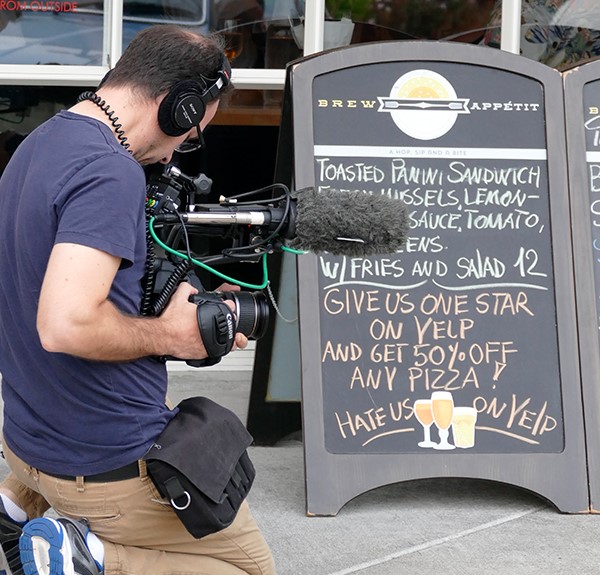 ROM OUTSIDE
BREW APPÉTIT
A HOP, SIP AND A BITE
TOASTED PANINI SANDWICH
FRESH MUSSELS, LEMON-
SAUCE, TOMATO,
ENS.
W/ FRIES AND SALAD 12
GIVE US ONE STAR
ON YELP
AND GET 50% OFF
ANY PIZZA!
HATE US ON YELP
Canon